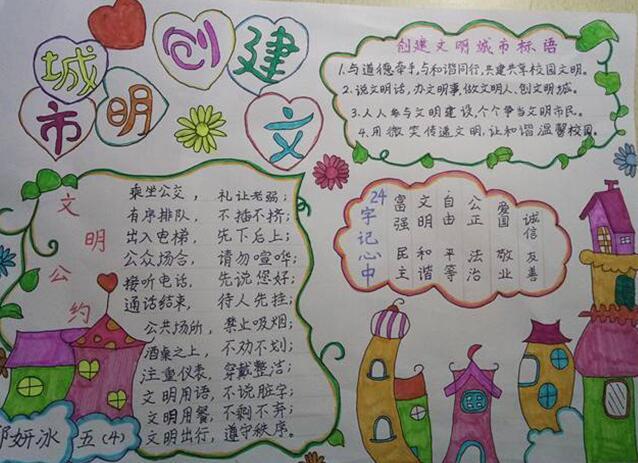 创建文
明城市
创建文明城市标语
1.与道德牵手,与和谐同行,共建共享校园文明。
2.说文明话,办文明事,做文明人,创文明城。
3.人人参与文明建设,个个争当文明市民。
4.用微笑传递文明,让和谐温馨校园。
文明公约
乘坐公交,礼让老弱;
有序排队,不插不挤;
出入电梯,先下后上;
公众场合,请勿喧哗;
接听电话,先说您好;
通话结束,待人先挂;
公共场所,禁止吸烟;
酒桌之上,不劝不划;
注重仪表,穿戴整洁;
文明用语,不说脏字;
文明用餐,不剩不弃;
文明出行,遵守秩序。
24字记心中
富强 民主
文明 和谐
自由 平等
公正 法治
爱国 敬业
诚信 友善
妍冰 五(4)